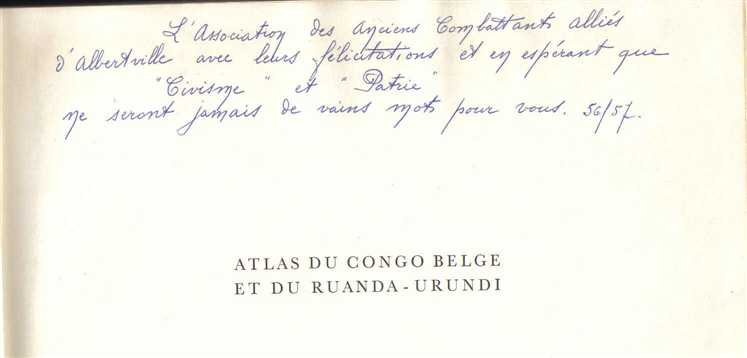 L'Association des Anciens Combattants alliés
d'Albertville avec leurs félicitations et en espérant que
"Civisme" et "Patrie"
ne seront jamais de vains mots pour vous. 56/57.
ATLAS DU CONGO BELGE
ET DU RUANDA-URUNDI